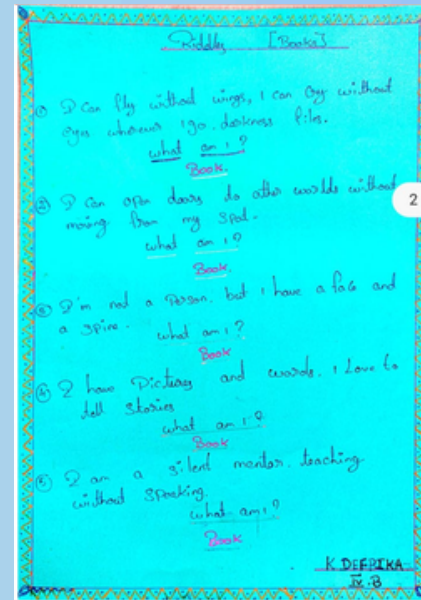 Riddles [Books]
① I can fly without wings, I can cry without
eyes wherever I go. darkness flies.
what am I?
Book.
② I can open doors to other worlds without
moving from my spot.
what am I?
Book.
2
③ I'm not a Person. but I have a face and
a spine. what am I?
Book
④ I have Pictures and words. I Love to
tell stories
what am I?
Book
⑤ I am a silent mentor. teaching
without speaking.
what am I?
Book
K. DEEPIKA
IV. B